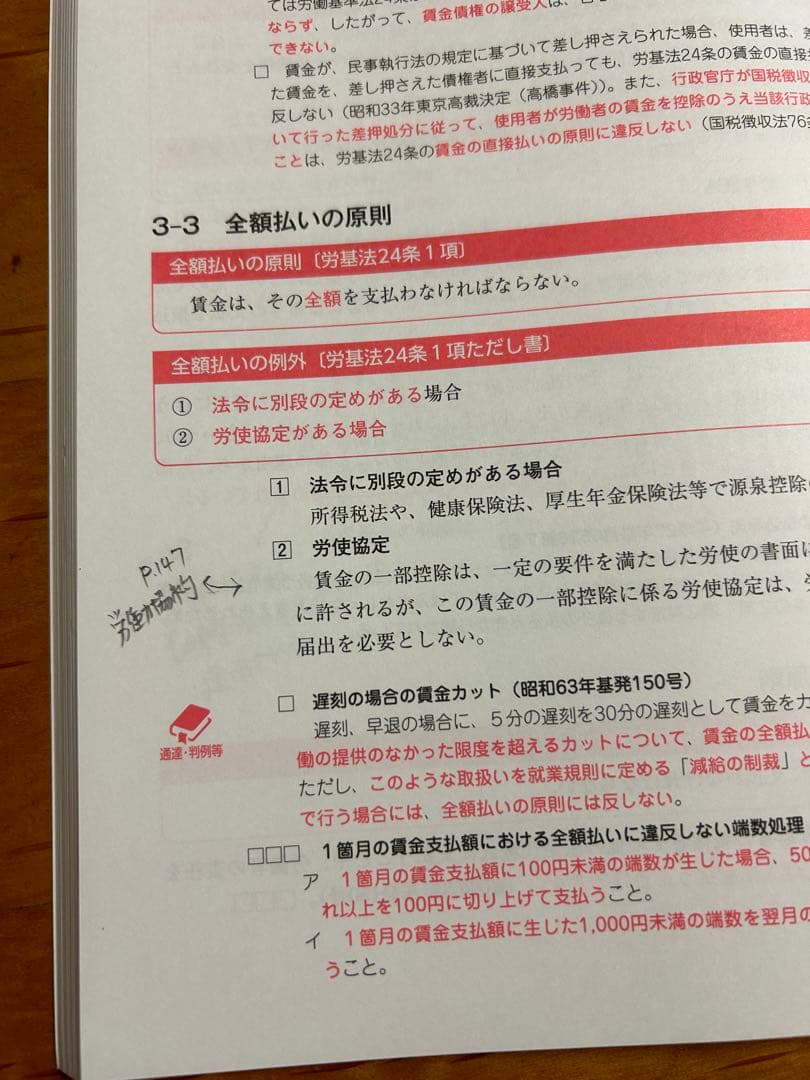 ならず、したがって、賃金債権の譲受人は、
できない。
□ 賃金が、民事執行法の規定に基づいて差し押さえられた場合、使用者は、差
た賃金を、差し押さえた債権者に直接支払っても、労基法24条の賃金の直接
反しない（昭和33年東京高裁決定（高橋事件））。また、行政官庁が国税徴収
いて行った差押処分に従って、使用者が労働者の賃金を控除のうえ当該行政
ことは、労基法24条の賃金の直接払いの原則に違反しない（国税徴収法76条
3-3 全額払いの原則
全額払いの原則〔労基法24条1項〕
賃金は、その全額を支払わなければならない。
全額払いの例外〔労基法24条1項ただし書〕
① 法令に別段の定めがある場合
② 労使協定がある場合
1 法令に別段の定めがある場合
所得税法や、健康保険法、厚生年金保険法等で源泉控除
2 労使協定
賃金の一部控除は、一定の要件を満たした労使の書面に
に許されるが、この賃金の一部控除に係る労使協定は、労
届出を必要としない。
P.147
労働協約 ↔
□ 遅刻の場合の賃金カット（昭和63年基発150号）
通達・判例等
遅刻、早退の場合に、5分の遅刻を30分の遅刻として賃金をカ
働の提供のなかった限度を超えるカットについて、賃金の全額払
ただし、このような取扱いを就業規則に定める「減給の制裁」と
で行う場合には、全額払いの原則には反しない。
□□□ 1箇月の賃金支払額における全額払いに違反しない端数処理
ア 1箇月の賃金支払額に100円未満の端数が生じた場合、50
れ以上を100円に切り上げて支払うこと。
イ 1箇月の賃金支払額に生じた1,000円未満の端数を翌月の
うこと。